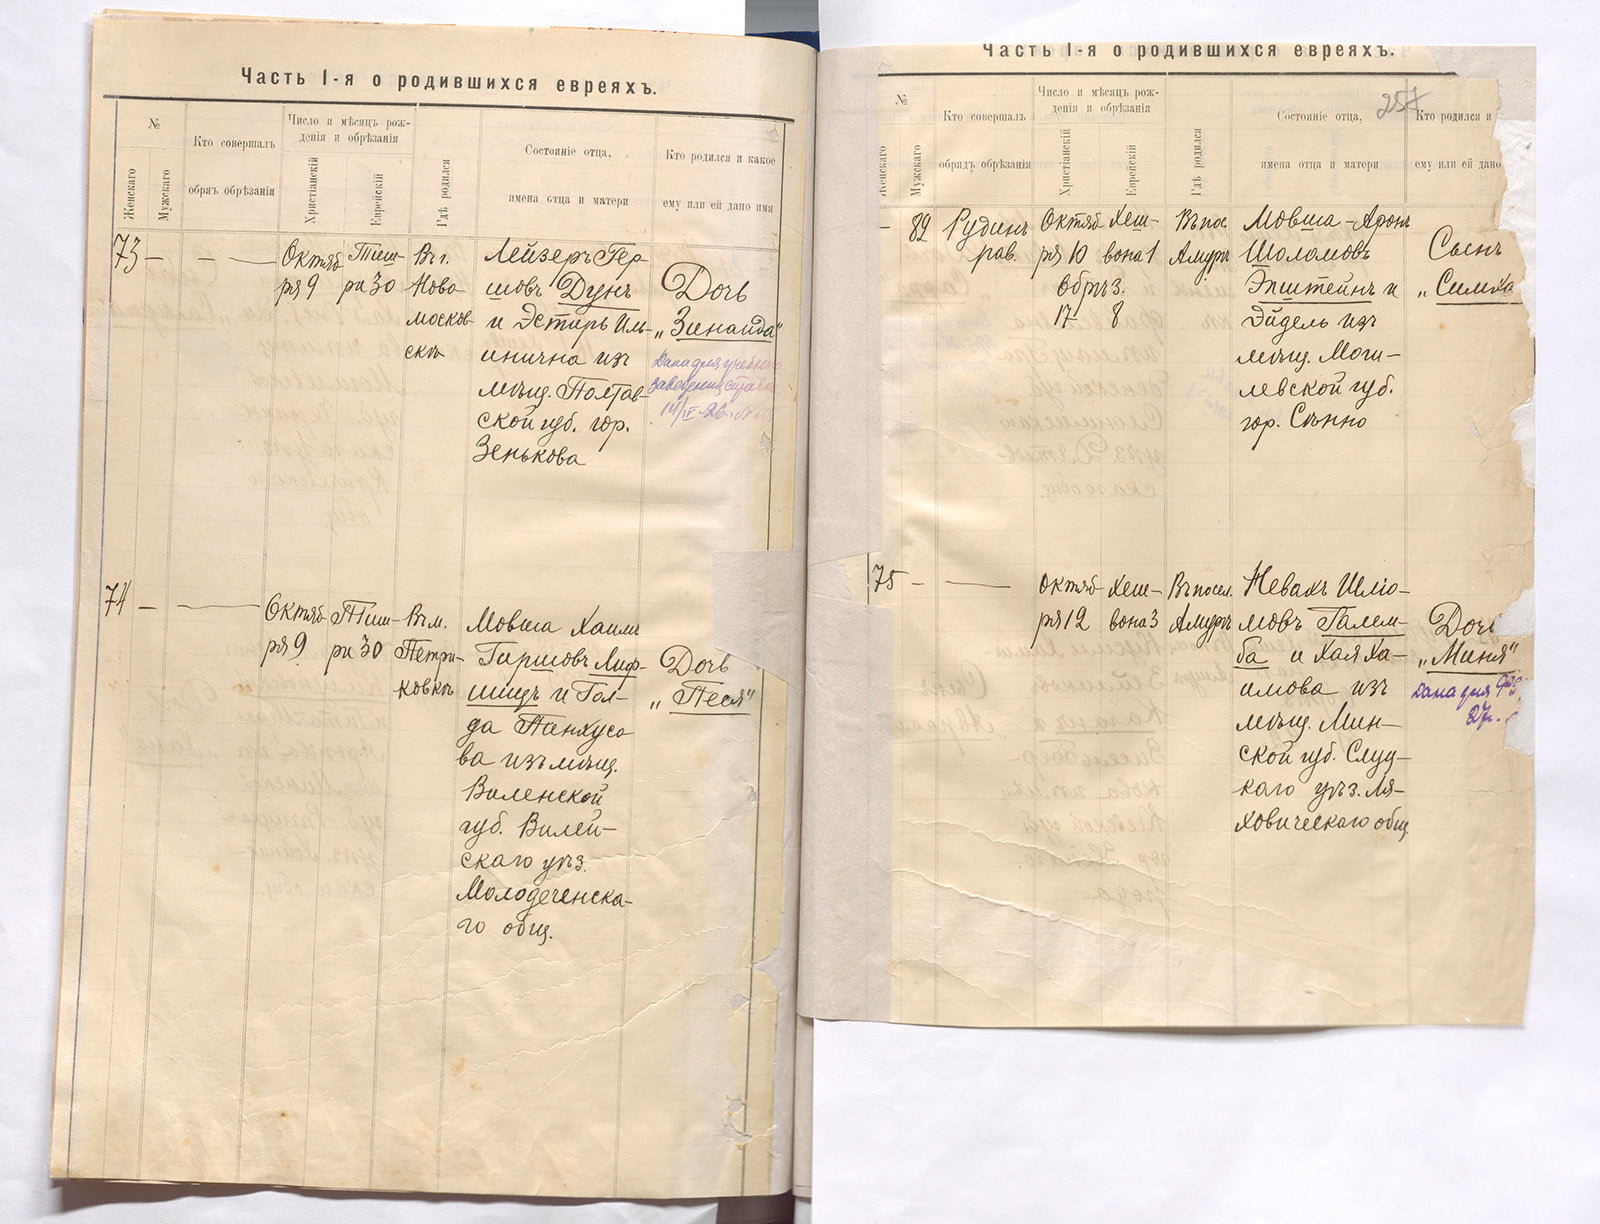 Часть I-я о родившихся евреяхъ.
№
Женскаго
Мужскаго
Кто совершалъ
обрядъ обрѣзанія
Число и мѣсяцъ рож-
денія и обрѣзанія
Христіанскій
Еврейскій
Гдѣ родился
Состояніе отца,
имена отца и матери
Кто родился и какое
ему или ей дано имя
73 — — —
Октяб
ря 9
Тиш-
ри 30
Въ г.
Ново
москов-
скѣ
Лейзеръ Гер-
шовъ Дунъ
и Эстиръ Иль-
инична изъ
мѣщ. Полтав-
ской губ. гор.
Зенькова
Дочь
„Зинаида"
Дана для учебнаго
заведения справка
14/IV-26
74 — —
Октяб
ря 9
Тиш-
ри 30
Въ м.
Петри-
ковкѣ
Мовша Хаимъ
Гиршовъ Лиф-
шицъ и Гол-
да Пинхусо
ва изъ мѣщ.
Виленской
губ. Вилей-
скаго уѣз.
Молодеченска-
го общ.
Дочь
„Песя"
Часть I-я о родившихся евреяхъ.
257
№
Женскаго
Мужскаго
Кто совершалъ
обрядъ обрѣзанія
Число и мѣсяцъ рож-
денія и обрѣзанія
Христіанскій
Еврейскій
Гдѣ родился
Состояніе отца,
имена отца и матери
Кто родился и
ему или ей дано
— 82
Рудинъ
рав.
Октяб
ря 10
Хеш-
вона 1
Обрѣз.
17 8
Въ пос.
Амуръ
Мовша-Аронъ
Шоломовъ
Эпштейнъ и
Эйдель изъ
мѣщ. Моги-
левской губ.
гор. Сѣнно
Сынъ
„Симха
75 — —
Октяб
ря 12
Хеш-
вона 3
Въ посел.
Амуръ
Невахъ Шлio-
мовъ Галем-
ба и Хая Ха-
имова изъ
мѣщ. Мин-
ской губ. Слуц-
каго уѣз. Ля-
ховическаго общ.
Дочь
„Миня"
Дана для
27г.